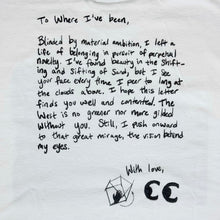 To Where I've been,
Blinded by material ambition, I left a
life of belonging in pursuit of perpetual
novelty. I've found beauty in the Shift-
ing and Sifting of Sand, but I see
your face every time I peer to long at
the clouds above. I hope this letter
finds you well and contented. The
West is no greener nor more gilded
without you. Still, I push onward
to that great mirage, the vision behind
my eyes.
With love,